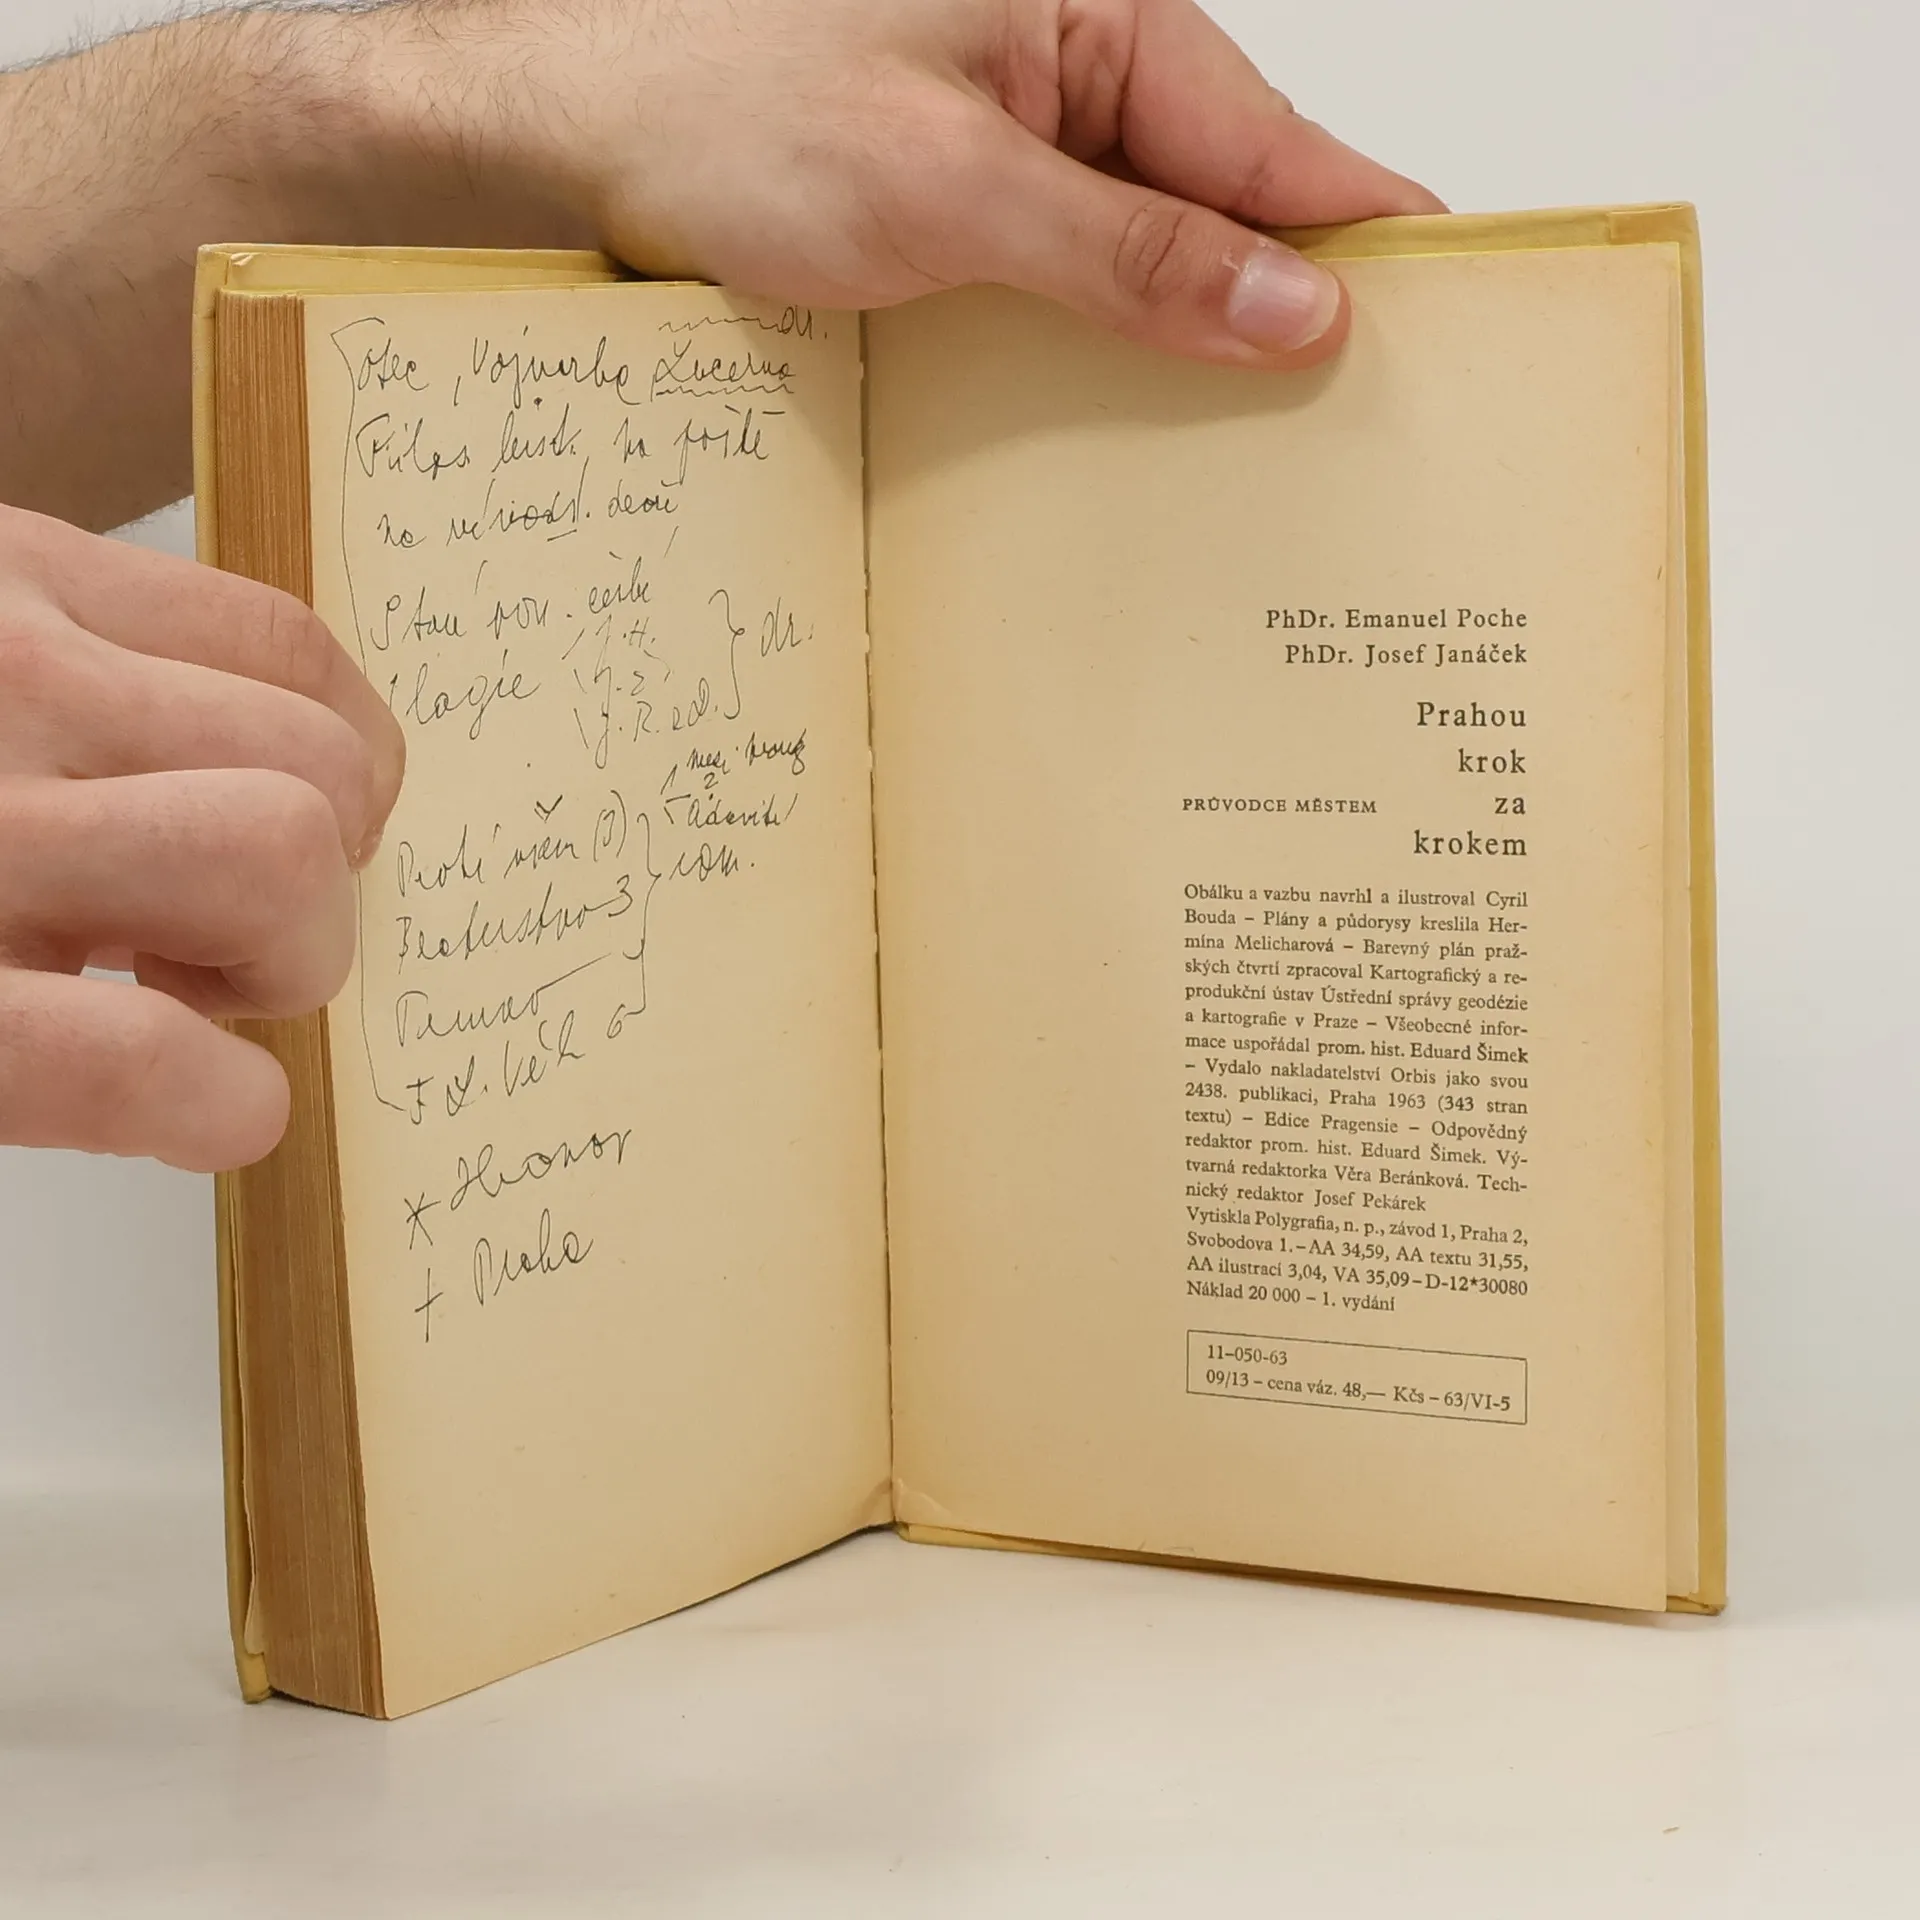 Otec, Vojnarka Lucerna dr.
na poště
Staré pov. české
J. H.
J. R. z D.
dr.
Proti všem (3)
Bratrstvo 3
Temno
F. L. Věk 6
rom.
* Hronov
† Praha
PhDr. Emanuel Poche
PhDr. Josef Janáček
Prahou
krok
PRŮVODCE MĚSTEM za
krokem
Obálku a vazbu navrhl a ilustroval Cyril
Bouda – Plány a půdorysy kreslila Her-
mína Melicharová – Barevný plán praž-
ských čtvrtí zpracoval Kartografický a re-
produkční ústav Ústřední správy geodézie
a kartografie v Praze – Všeobecné infor-
mace uspořádal prom. hist. Eduard Šimek
– Vydalo nakladatelství Orbis jako svou
2438. publikaci, Praha 1963 (343 stran
textu) – Edice Pragensie – Odpovědný
redaktor prom. hist. Eduard Šimek. Vý-
tvarná redaktorka Věra Beránková. Tech-
nický redaktor Josef Pekárek
Vytiskla Polygrafia, n. p., závod 1, Praha 2,
Svobodova 1. – AA 34,59, AA textu 31,55,
AA ilustrací 3,04, VA 35,09 – D-12*30080
Náklad 20 000 – 1. vydání
11–050-63
09/13 – cena váz. 48,— Kčs – 63/VI-5